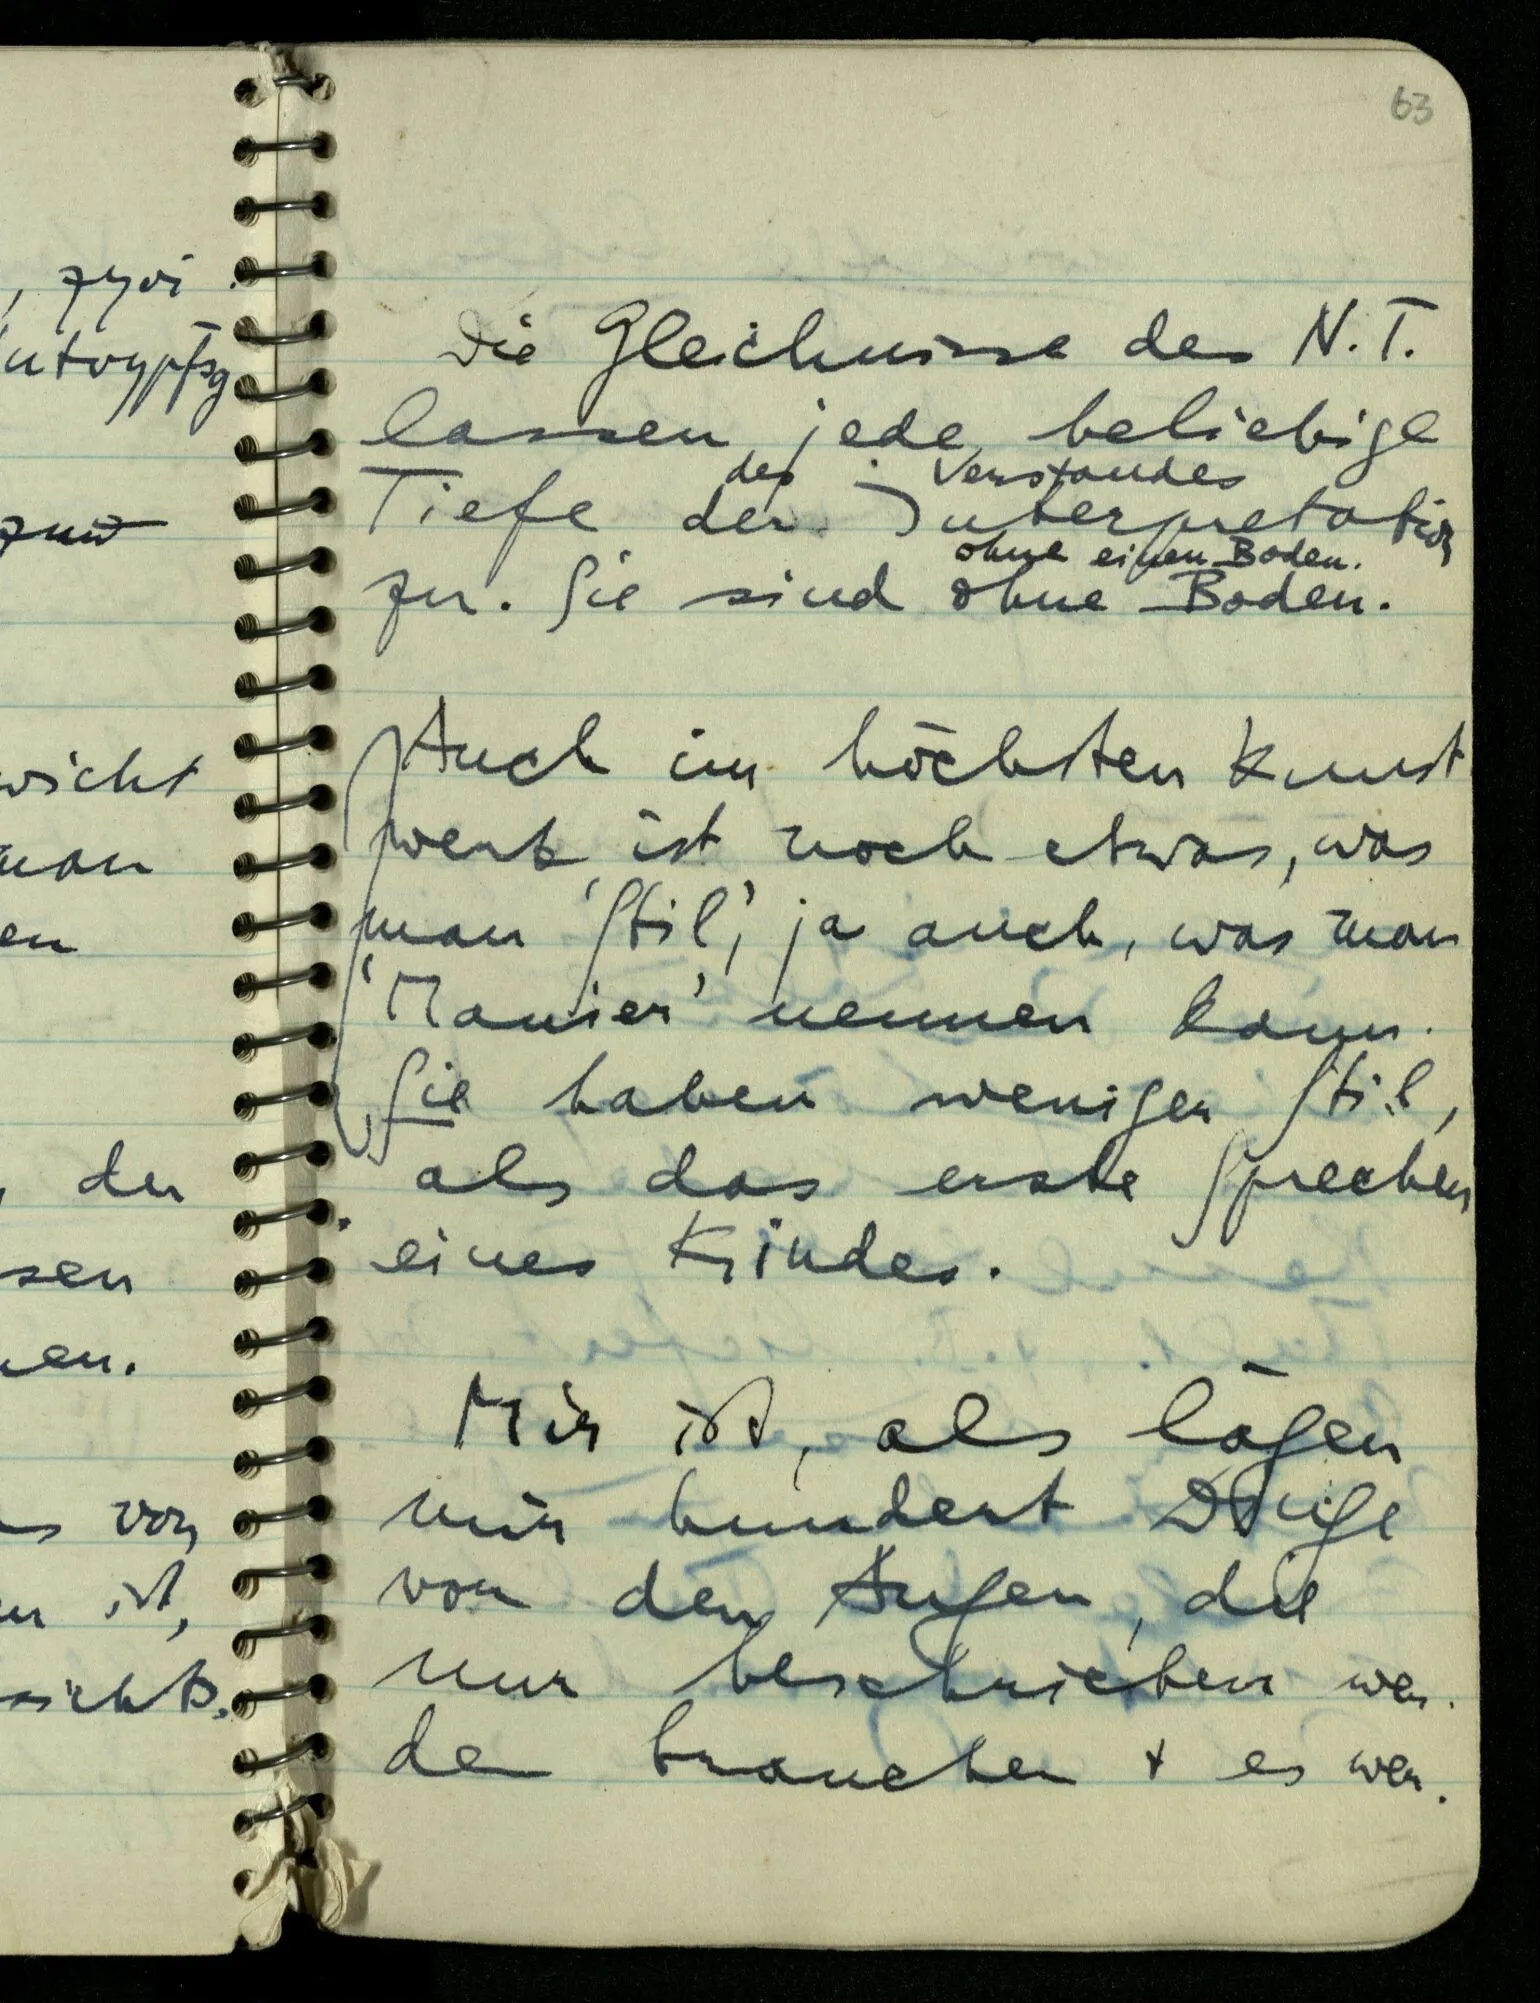 63
, zyvi
utvypfsg
zuw
wicht
man
en
, der
sen
en.
s von
ist,
sichts.
Die Gleichnisse des N.T.
lassen jede beliebige
des Verstandes
Tiefe der Interpretation
ohne einen Boden.
zu. Sie sind ohne Boden.
Auch im höchsten Kunst
werk ist noch etwas, was
man 'Stil', ja auch, was man
'Manier' nennen kann.
Sie haben weniger Stil,
als das erste Sprechen
eines Kindes.
Mir ist, als lägen
mir hundert Dinge
vor den Augen, die
nur beschrieben wer-
den brauchen + es wer-